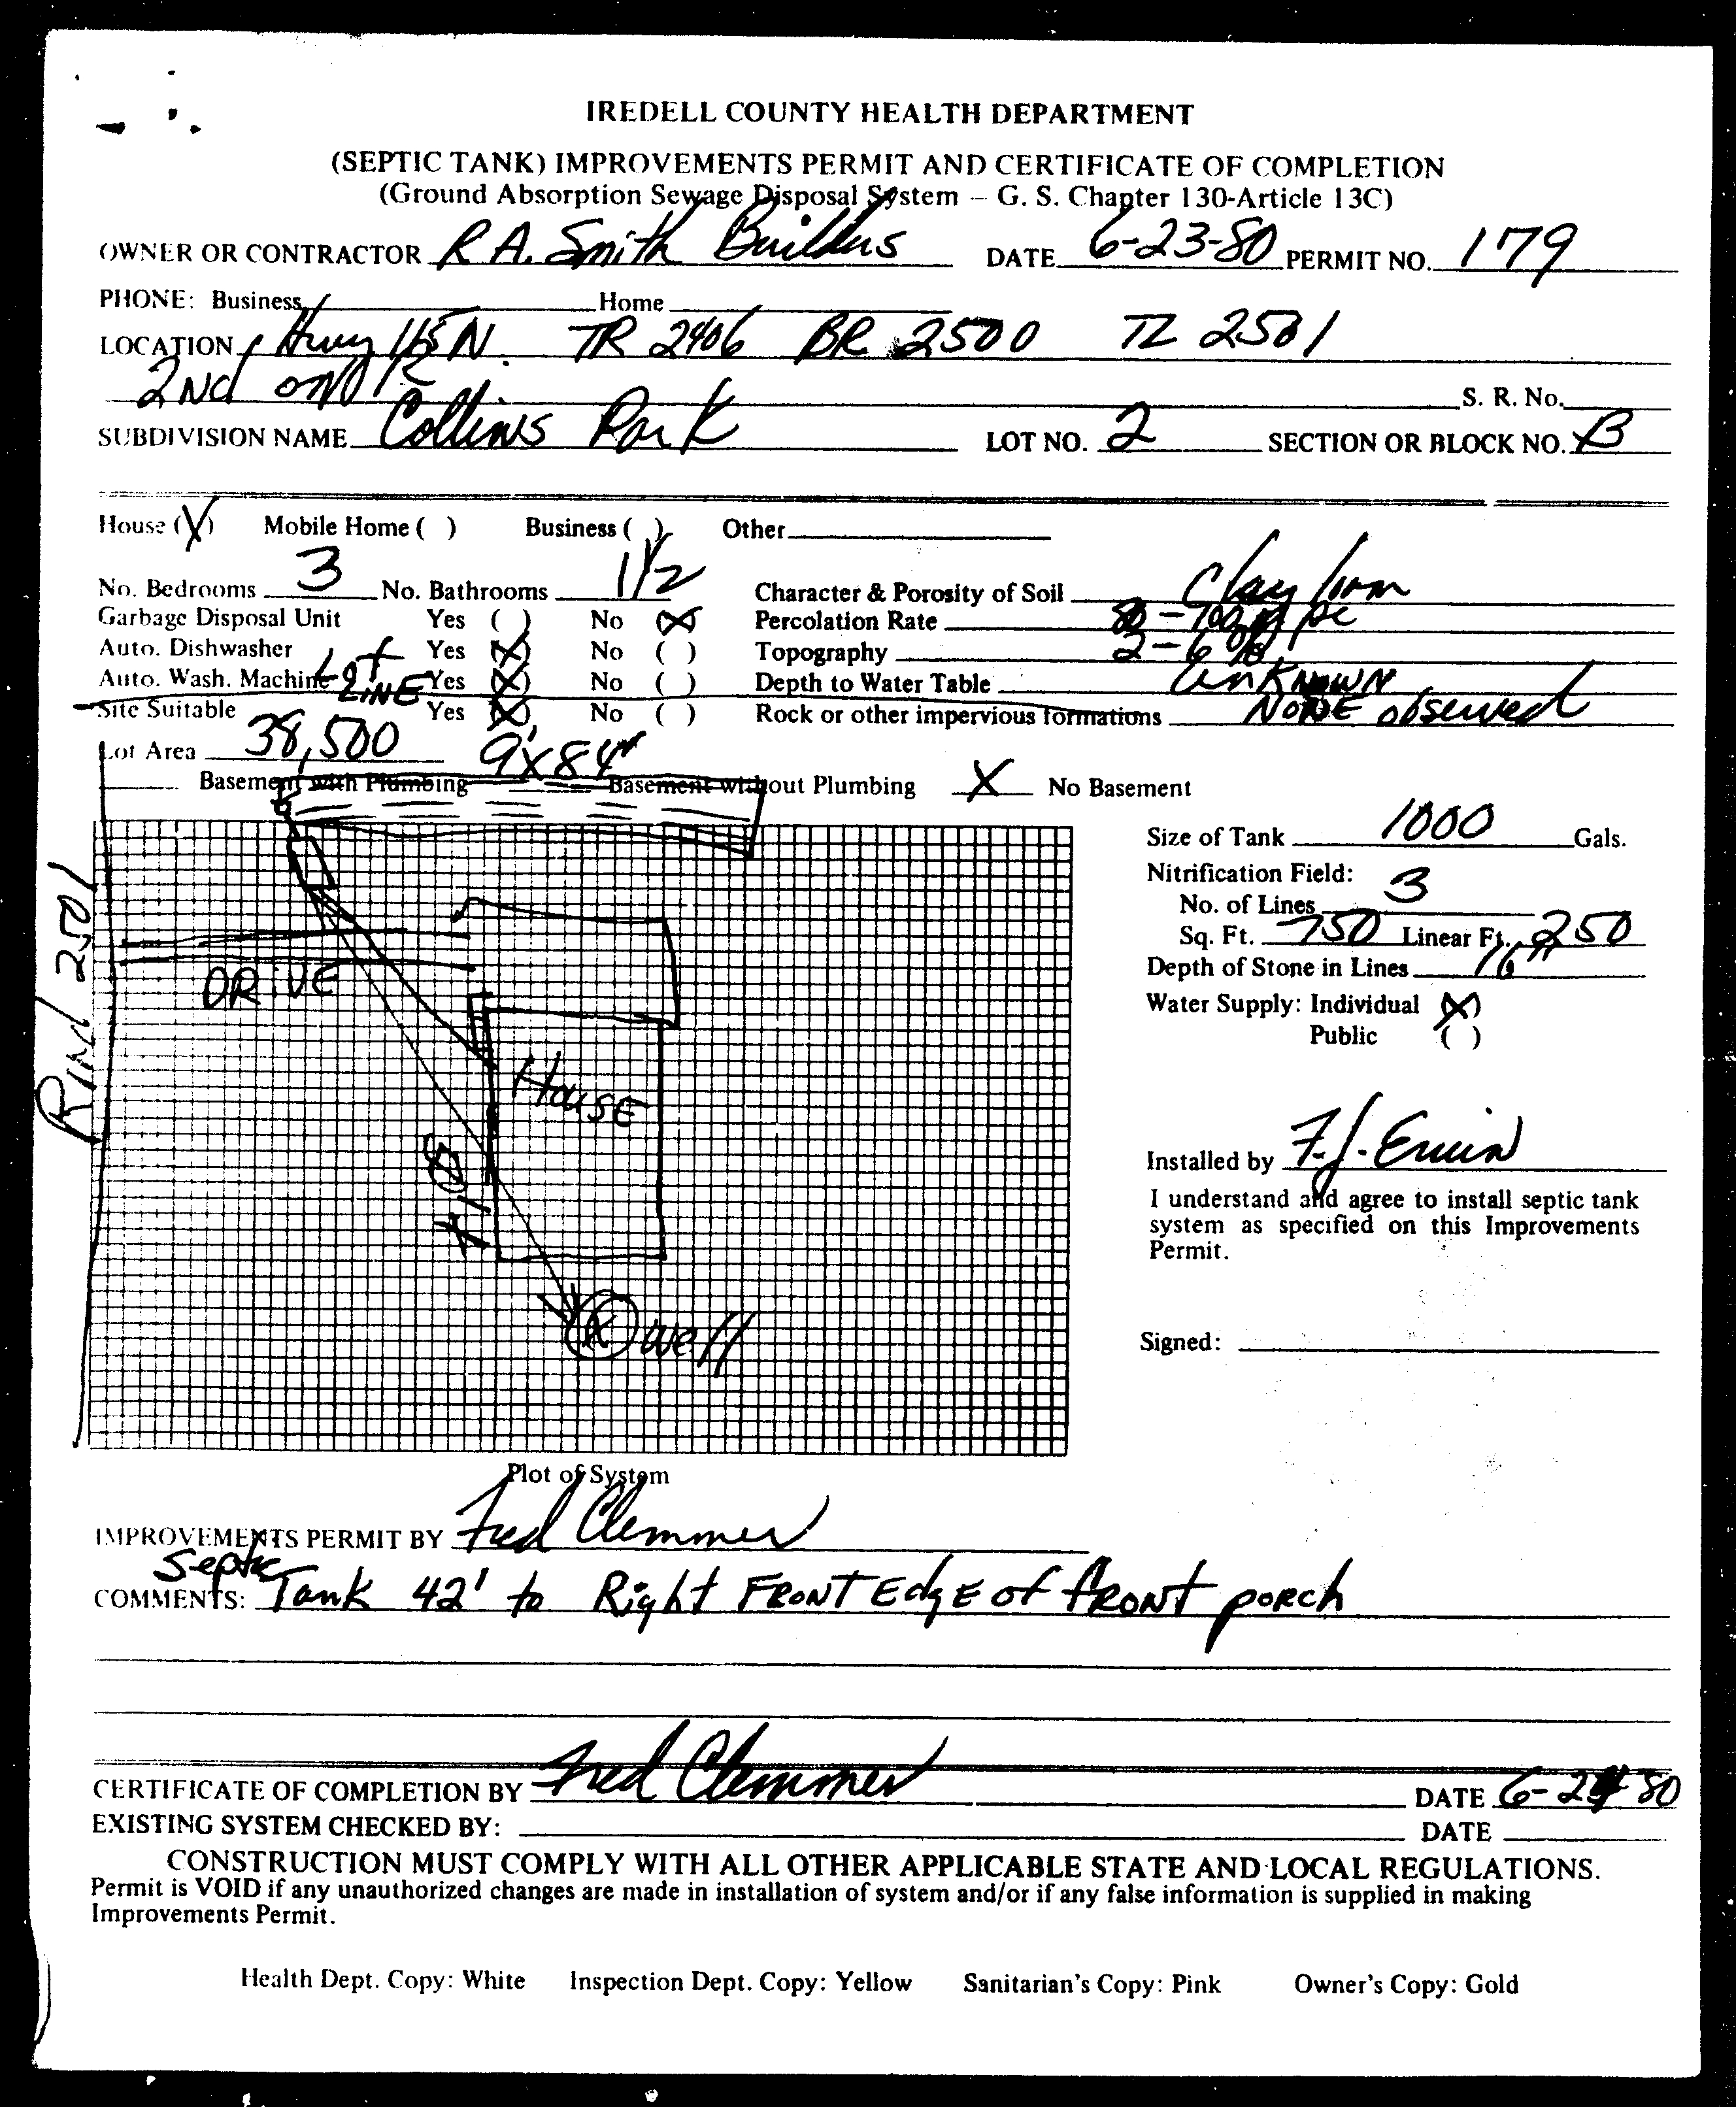 IREDELL COUNTY HEALTH DEPARTMENT
(SEPTIC TANK) IMPROVEMENTS PERMIT AND CERTIFICATE OF COMPLETION
(Ground Absorption Sewage Disposal System – G. S. Chapter 130-Article 13C)
OWNER OR CONTRACTOR R A. Smith Builders DATE 6-23-80 PERMIT NO. 179
PHONE: Business Home
LOCATION Hwy 115 N. TR 2406 BR 2500 TL 2501
2Nd on R S. R. No.
SUBDIVISION NAME Collins Park LOT NO. 2 SECTION OR BLOCK NO. B
House (X) Mobile Home ( ) Business ( ) Other
No. Bedrooms 3 No. Bathrooms 1 1/2 Character & Porosity of Soil Clay loam
Garbage Disposal Unit Yes ( ) No (X) Percolation Rate 80-100
Auto. Dishwasher Yes (X) No ( ) Topography 2-6%
Auto. Wash. Machine Yes (X) No ( ) Depth to Water Table UnKNOWN
Lot LiNE
Site Suitable Yes (X) No ( ) Rock or other impervious formations NONE observed
Lot Area 38,500 9'x84'
Basement with Plumbing Basement without Plumbing X No Basement
Size of Tank 1000 Gals.
Nitrification Field:
No. of Lines 3
Sq. Ft. 750 Linear Ft. 250
Depth of Stone in Lines 16"
Water Supply: Individual (X)
Public ( )
2501
DRiVE
HousE
well
Installed by F.J. Erwin
I understand and agree to install septic tank
system as specified on this Improvements
Permit.
Signed:
Plot of System
IMPROVEMENTS PERMIT BY Fred Clemmer
COMMENTS: Septic Tank 42' to Right FRONT EdgE of fRONT poRch
CERTIFICATE OF COMPLETION BY Fred Clemmer DATE 6-24-80
EXISTING SYSTEM CHECKED BY: DATE
CONSTRUCTION MUST COMPLY WITH ALL OTHER APPLICABLE STATE AND LOCAL REGULATIONS.
Permit is VOID if any unauthorized changes are made in installation of system and/or if any false information is supplied in making
Improvements Permit.
Health Dept. Copy: White Inspection Dept. Copy: Yellow Sanitarian's Copy: Pink Owner's Copy: Gold